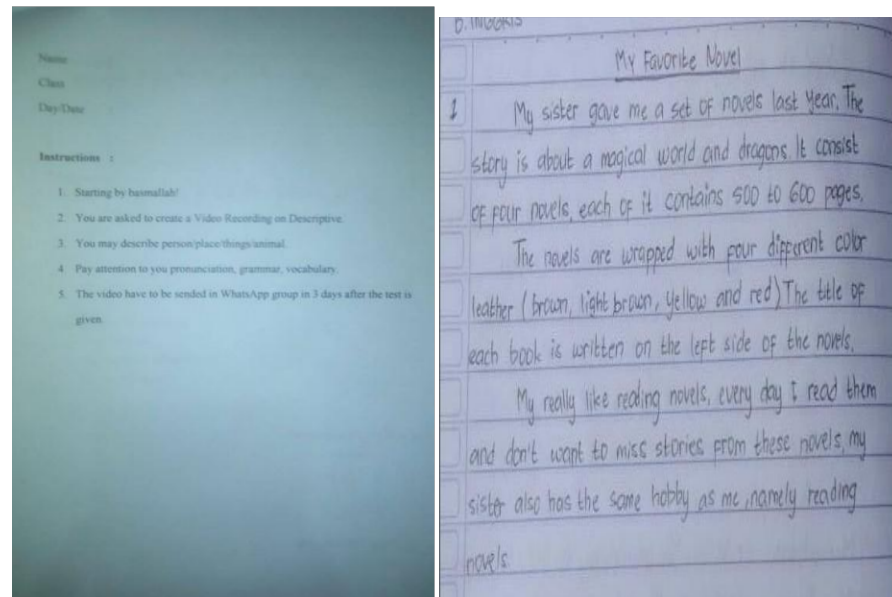 Name
Class
Day/Date :
Instructions :
1. Starting by basmallah!
2. You are asked to create a Video Recording on Descriptive.
3. You may describe person/place/things/animal.
4. Pay attention to you pronunciation, grammar, vocabulary.
5. The video have to be sended in WhatsApp group in 3 days after the test is
given.
B. INGGRIS
My Favorite Novel
1 My sister gave me a set of novels last year. The
story is about a magical world and dragons. It consist
of four novels, each of it contains 500 to 600 pages.
The novels are wrapped with four different color
leather (brown, light brown, yellow and red) The title of
each book is written on the left side of the novels.
My really like reading novels, every day I read them
and don't want to miss stories from these novels, my
sister also has the same hobby as me, namely reading
novels